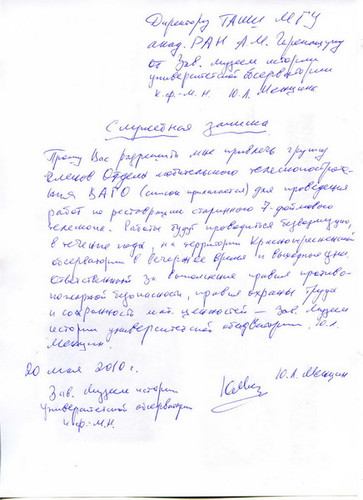 Директору ГАИШ МГУ
акад. РАН А.М. Черепащуку
от Зав. Музеем истории
университетской обсерватории
к.ф.-м.н. Ю.Л. Менцина
Служебная записка
Прошу Вас разрешить мне привлечь группу
членов Отдела любительского телескопострое-
ния ВАГО (список прилагается) для проведения
работ по реставрации старинного 7-дюймового
телескопа. Работы будут проводиться безвозмездно,
в течение года, на территории Краснопресненской
обсерватории в вечернее время и выходные дни.
Ответственный за выполнение правил противо-
пожарной безопасности, правил охраны труда
и сохранность мат. ценностей – Зав. Музеем
истории университетской обсерватории Ю.Л.
Менцин.
20 мая 2010 г.
Зав. Музеем истории
университетской обсерватории
к.ф.-м.н.
Ю.Л. Менцин